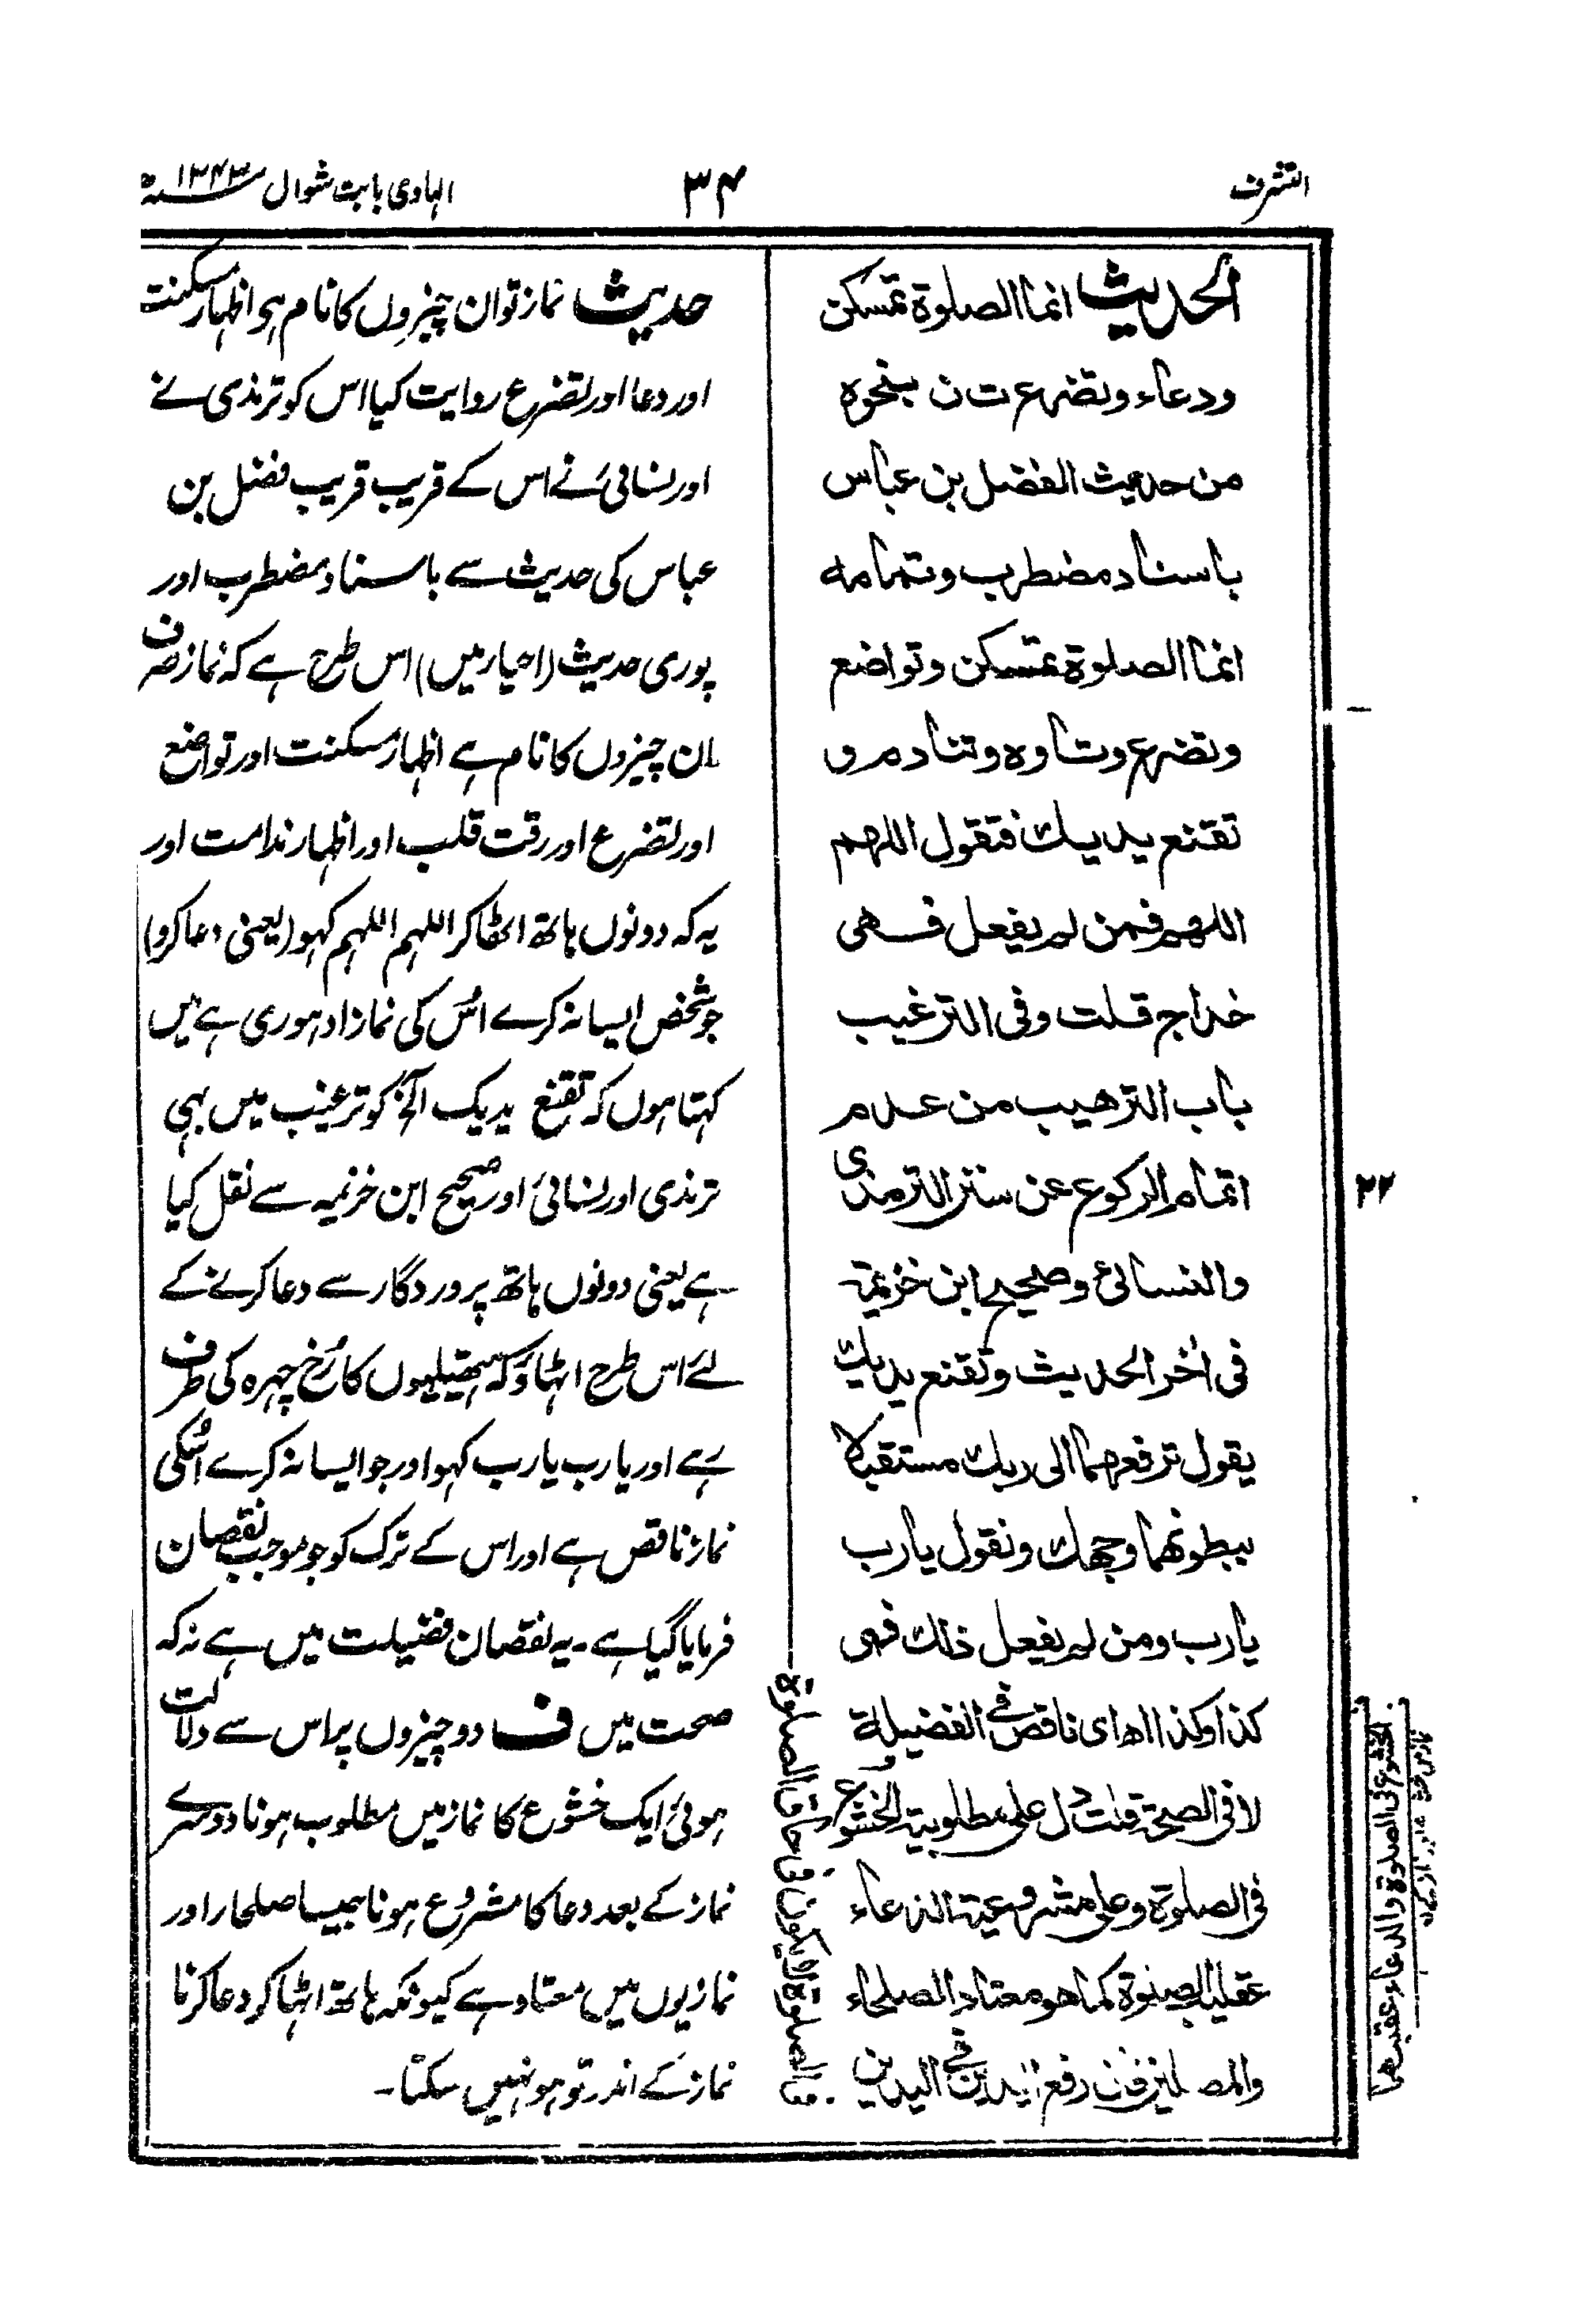 التشرف
۳۴
الہادی بابت شوال ۱۳۴۳ھ
الحدیث انما الصلوة تمسکن
ودعاء وتضرع ت ن بنحوه
من حدیث الفضل بن عباس
باسناد مضطرب وتمامه
انما الصلوة تمسکن وتواضع
وتضرع وتاوه وتنادم و
تقنع یدیك فتقول اللهم
اللهم فمن لم یفعل فهی
خداج قلت وفی الترغیب
باب الترهیب من عدم
اتمام الرکوع عن سنن الترمذی
والنسائی وصحیح ابن خزیمة
فی اٰخر الحدیث وتقنع یدیك
یقول ترفعهما الی ربك مستقبلا
ببطونهما وجهك وتقول یارب
یارب ومن لم یفعل ذلك فهی
کذا وکذا اھ ای ناقص فی الفضیلة
لا فی الصحة قلت دل علی مطلوبیة الخشوع
فی الصلوة وعلی مشروعیة الدعاء
عقیب الصلوة کما هو معتاد الصلحاء
والمصلین فان رفع الیدین فی الیدین
فی الصلوة لا یکون فی حاق الصلوة
حدیث نماز تو ان چیزوں کا نام ہی اظہار مسکنت
اور دعا اور تضرع روایت کیا اس کو ترمذی نے
اور نسائی نے اس کے قریب قریب فضل بن
عباس کی حدیث سے باسناد مضطرب اور
پوری حدیث (احیار میں) اس طرح ہے کہ نماز صرف
ان چیزوں کا نام ہے اظہار مسکنت اور تواضع
اور تضرع اور رقت قلب اور اظہار ندامت اور
یہ کہ دونوں ہاتھ اٹھا کر اللہم اللہم کہو (یعنی دعا کرو)
جو شخص ایسا نہ کرے اُس کی نماز ادہوری ہے میں
کہتا ہوں کہ تقنع یدیک الخ کو ترغیب میں بہی
ترمذی اور نسائی اور صحیح ابن خزیمہ سے نقل کیا
ہے یعنی دونوں ہاتھ پروردگار سے دعا کرنے کے
لئے اس طرح اٹہاؤ کہ ہتھیلیوں کا رُخ چہرہ کی طرف
رہے اور یارب یارب کہو اور جو ایسا نہ کرے اُسکی
نماز ناقص ہے اور اس کے ترک کو جو موجب نقصان
فرمایا گیا ہے۔ یہ نقصان فضیلت میں ہے نہ کہ
صحت میں ف دو چیزوں پر اس سے دلالت
ہوئی ایک خشوع کا نماز میں مطلوب ہونا دوسرے
نماز کے بعد دعا کا مشروع ہونا جیسا صلحار اور
نمازیوں میں معتاد ہے کیونکہ ہاتھ اٹہا کر دعا کرنا
نماز کے اندر تو ہو نہیں سکتا۔
۲۲
الخشوع فی الصلوة والدعاء عقیبها